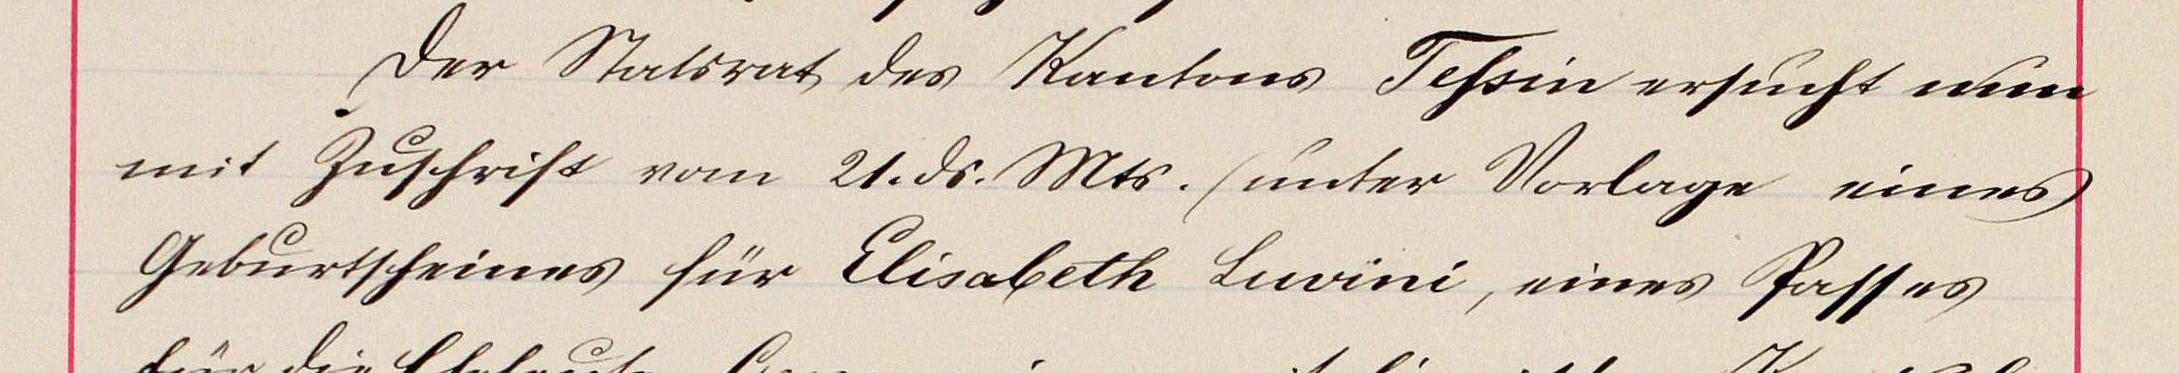 Der Statsrat des Kantons Tessin ersucht nun
mit Zuschrift vom 21. ds. Mts. (unter Vorlage eines
Geburtscheines für Elisabeth Luvini, eines Passes
für die Eheleute